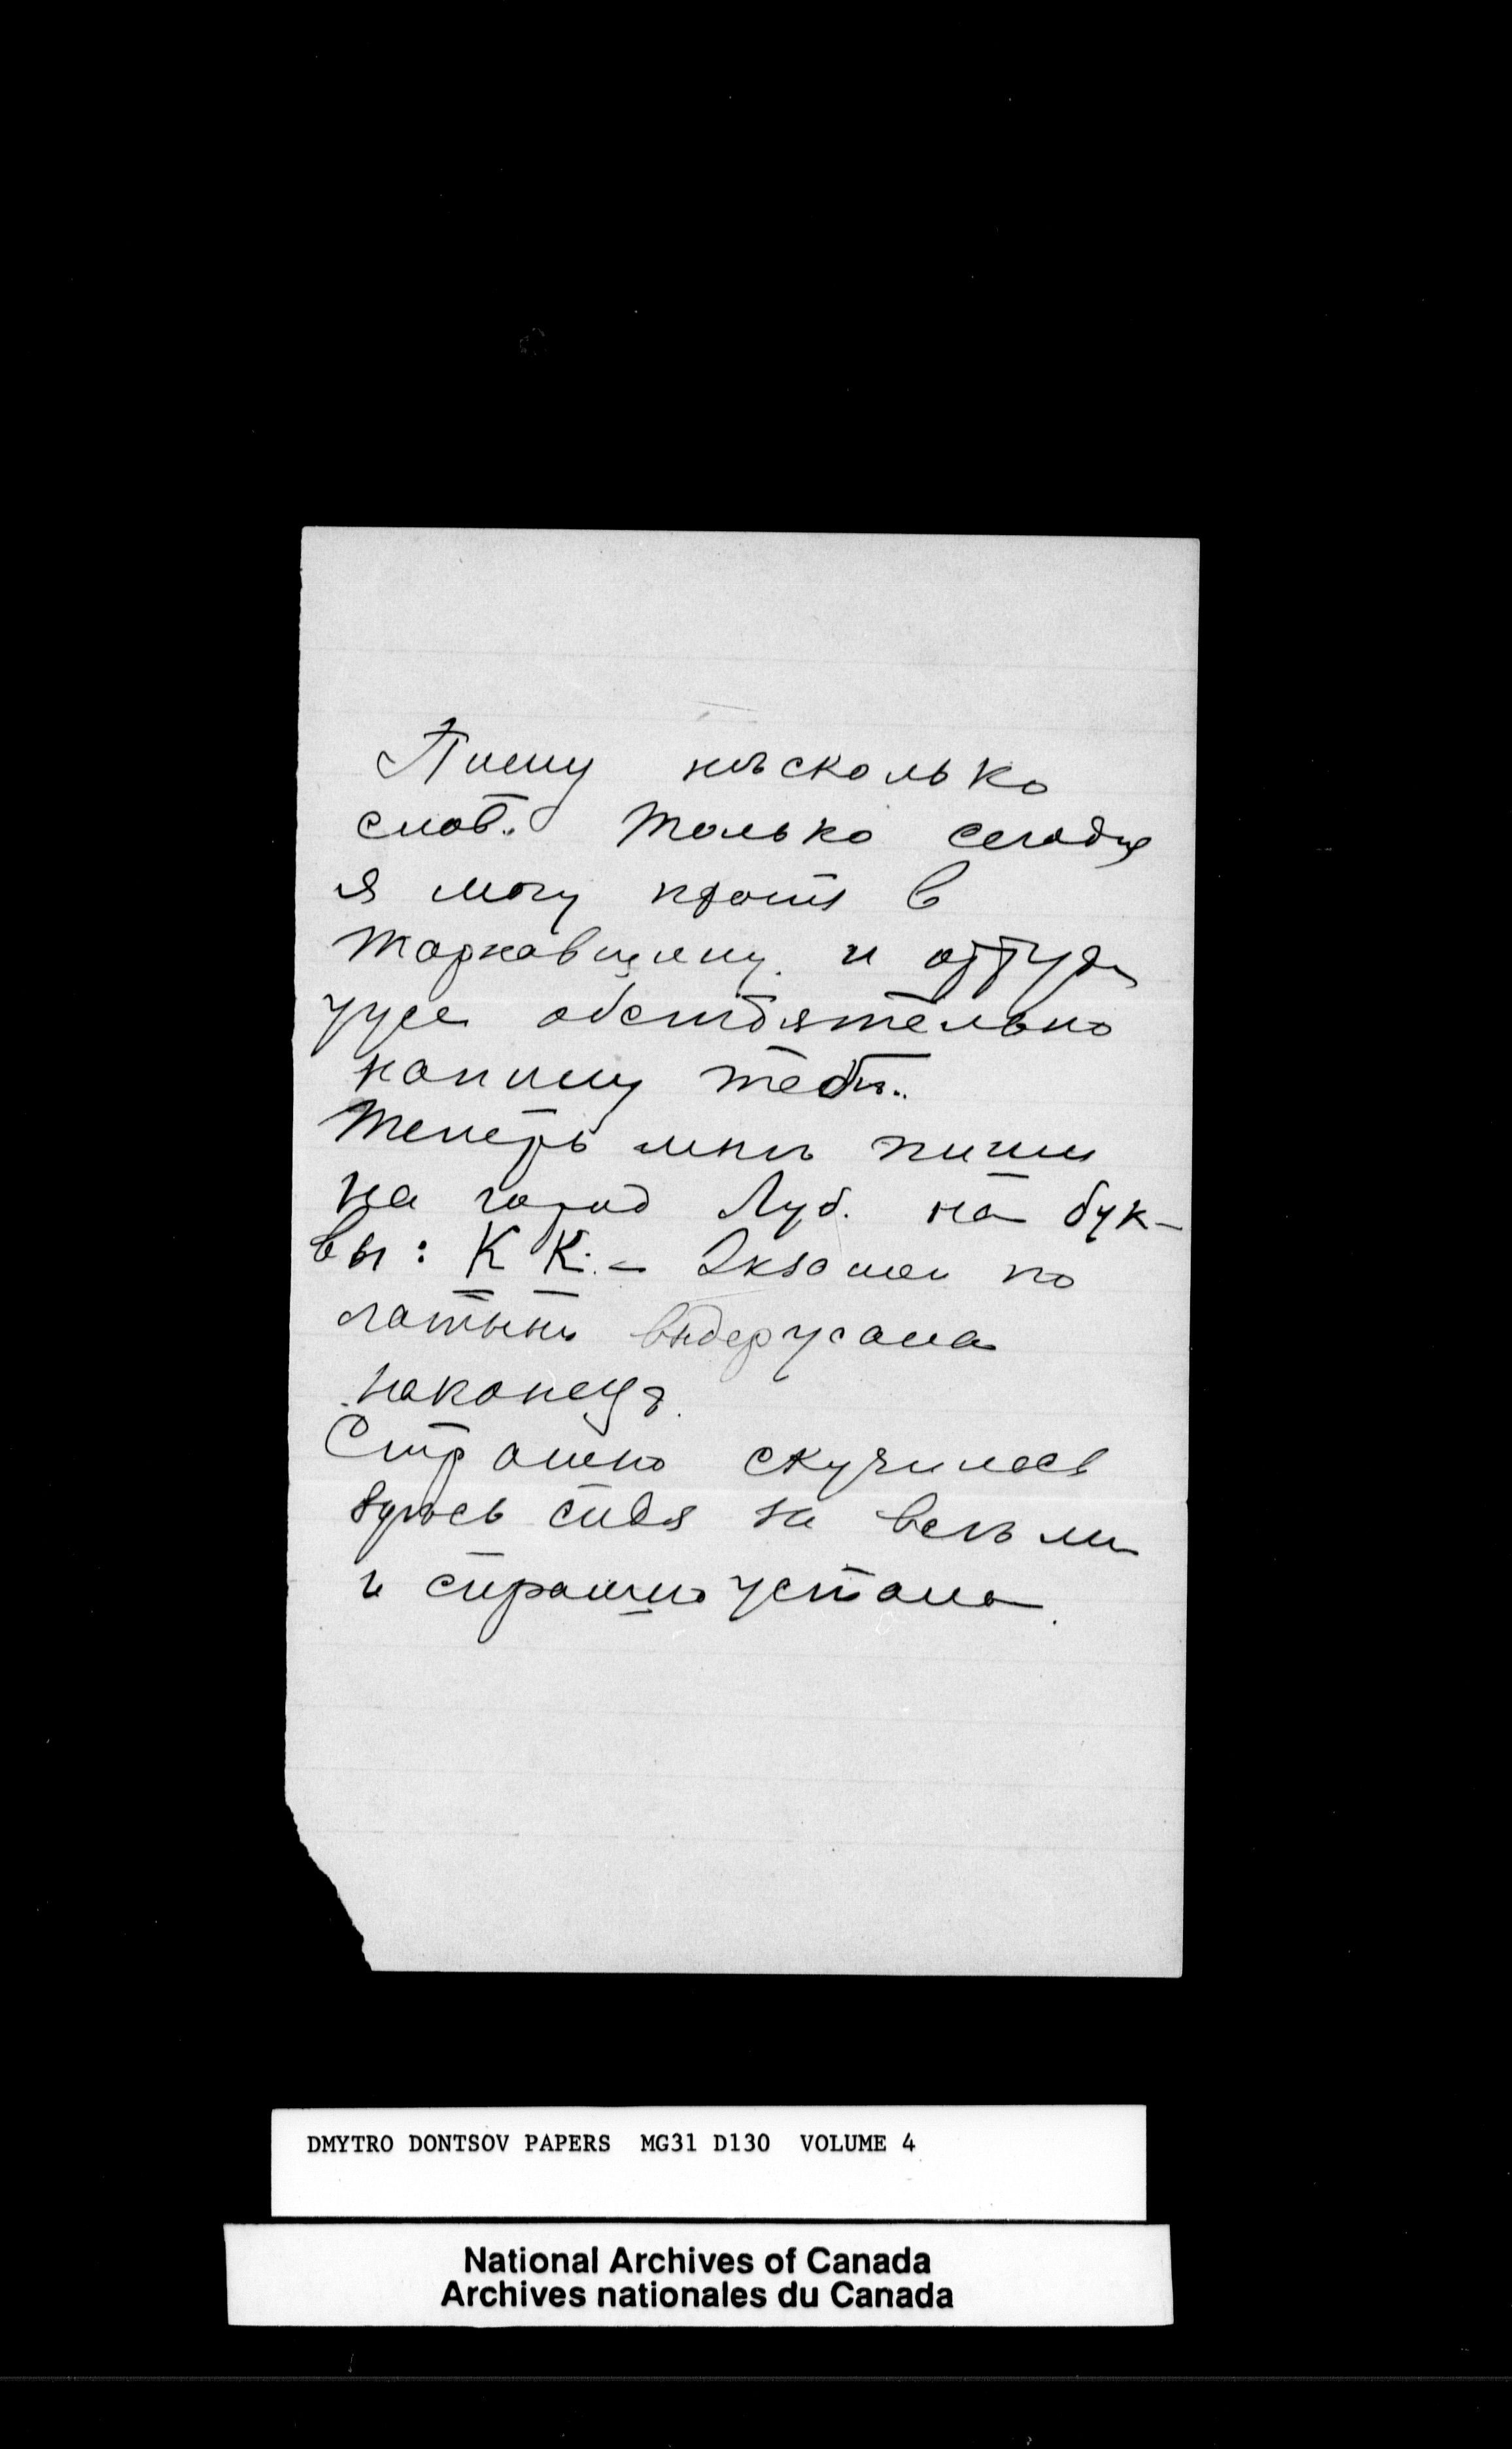 Пишу нѣсколько
слов. Только сегодня
я могу в
Тарнавщину и оттуда
уже обстоятельно
напишу тебѣ..
Теперь мнѣ пиши
на город Луб. на бук-
вы: К К. – Экзамен по
латыни выдержала
наконецъ.
Страшно скучилась
здѣсь сидя на всѣ
и страшно устала.
DMYTRO DONTSOV PAPERS MG31 D130 VOLUME 4
National Archives of Canada
Archives nationales du Canada